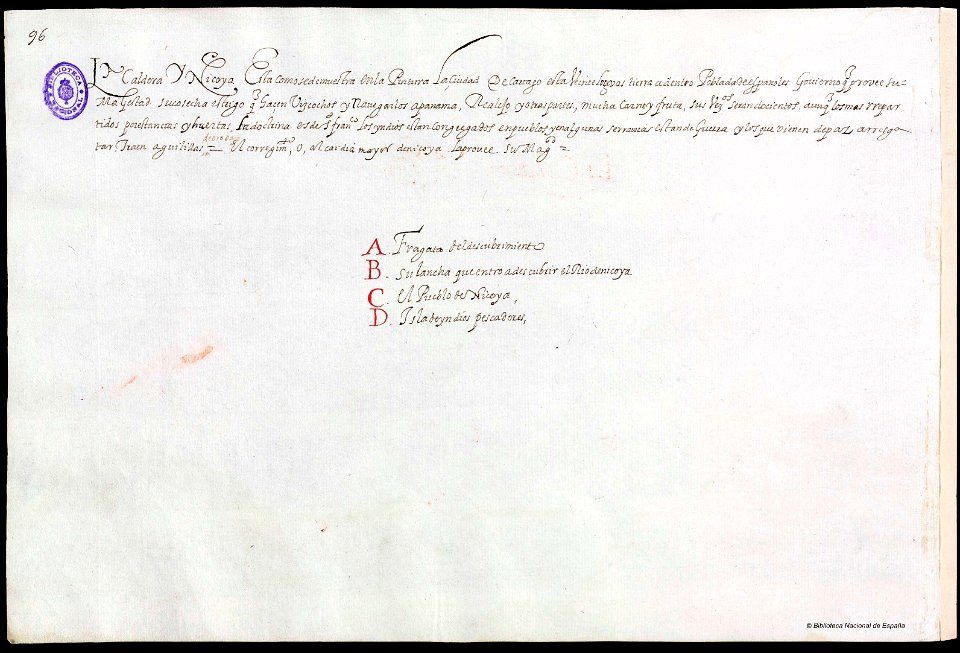 96
BIBLIOTECA
La Caldera Y Nicoya Esta como se demuestra en la Pintura La Ciudad De Cartago esta Veinte leguas tierra adentro Poblada de españoles Gouierno q̃ prouee su
Magestad su cosecha es trigo q̃ hacen Vizcochos y Nauegarlos a panama, Realejo y otras partes, mucha Carne y fruta, sus Vezos seran docientos, aunq̃ los mas repar
tidos por estancias y huertas, la doctrina es de s. franco los yndios estan congregados en pueblos y en algunas serranias estan de Guerra y los que vienen de paz a rresga
tar, traen aguilillas de oro = El corregimto, o, alcaldia mayor de nicoya la prouee Su Magd =
A. Fragata del descubrimiento
B. su lancha que entro a descubrir el Rio de nicoya
C. El Pueblo de Nicoya,
D. Isla de yndios pescadores,
© Biblioteca Nacional de España